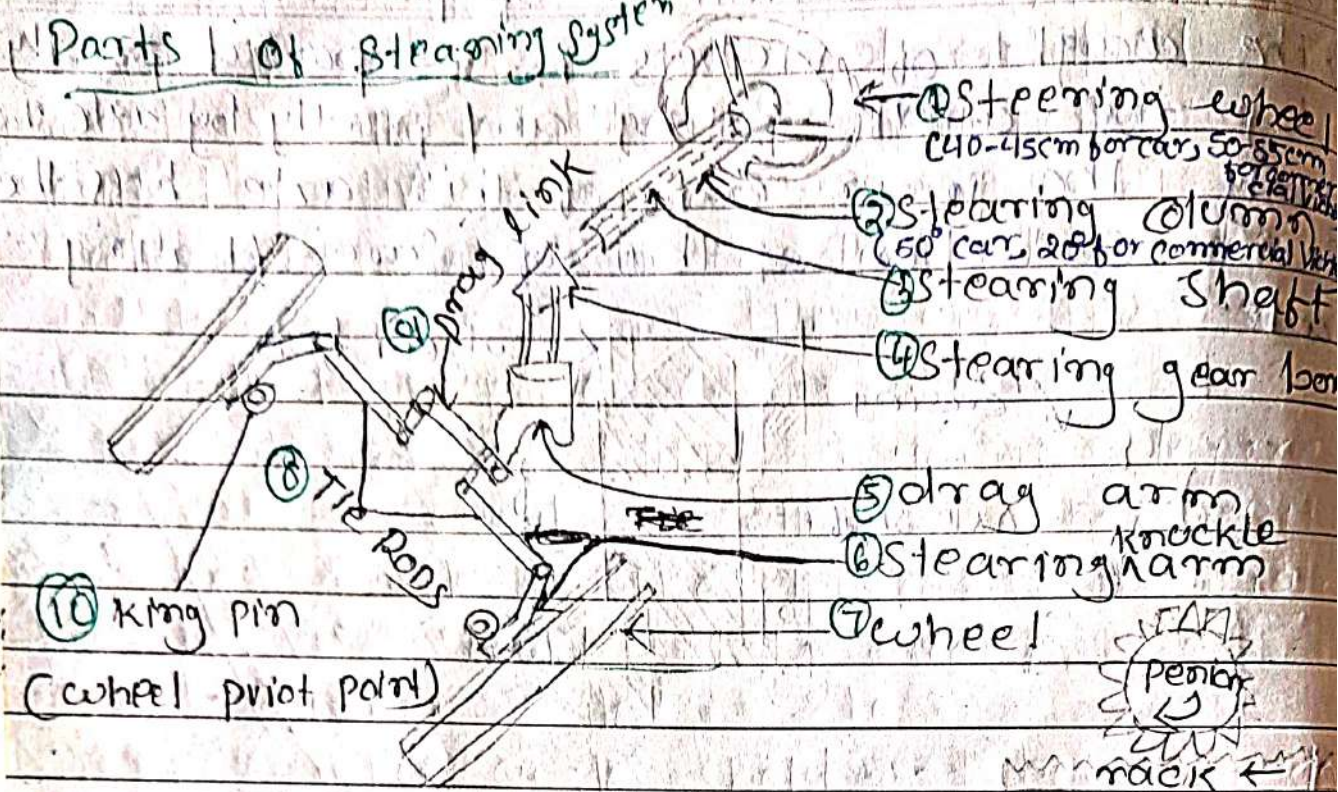 Parts Of Stearing System
① Steering wheel
(40-45cm for car, 50-55cm
② Stearing Column
(50° car, 20° for commercial
③ Stearing Shaft
④ Stearing gear
⑤ drag arm
knuckle
⑥ Stearing ^ arm
⑦ wheel
⑧ TIE RODS
⑨ Drag link
⑩ King pin
(wheel priot point)
penion
rack ←